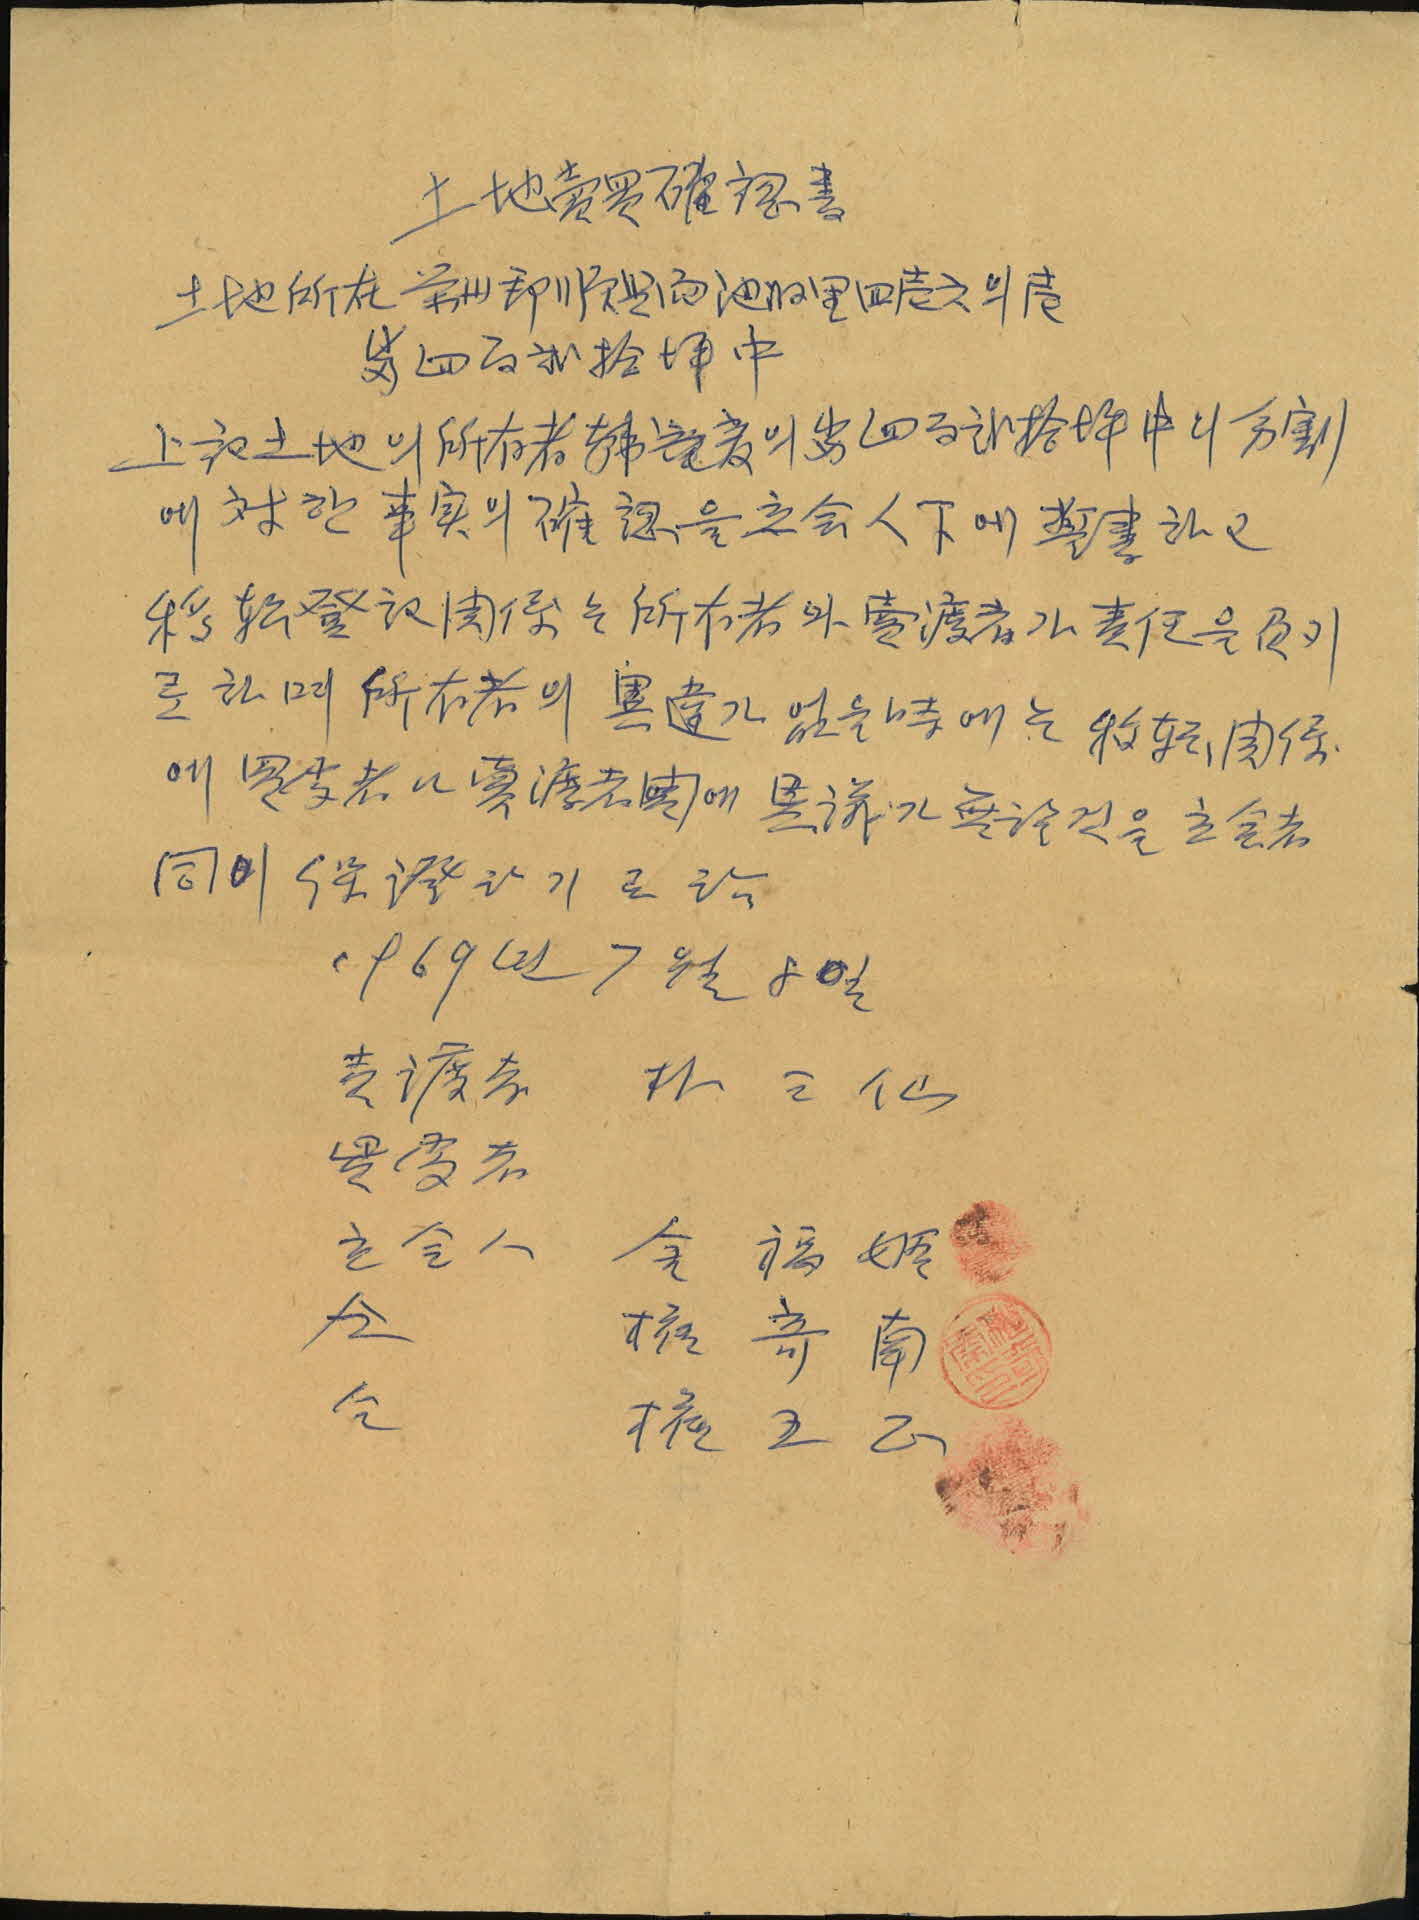 土地賣買確認書
土地所在 榮州郡順興面池洞里四壱六의壱
畓四百弐拾坪中
上記土地의所有者 의畓四百弐拾坪中의分割
에対한事実의確認을立会人下에 書하고
移転登記関係는所有者와賣渡者가責任을 기
로하며所有者의異 가없을時에는移転関係
에買受者나賣渡者間에異議가無할것을立会者
同이保證하기로함
1969년7월8일
売渡者 朴三仙
買受者
立会人 金福姬
仝 権奇南
仝 権五